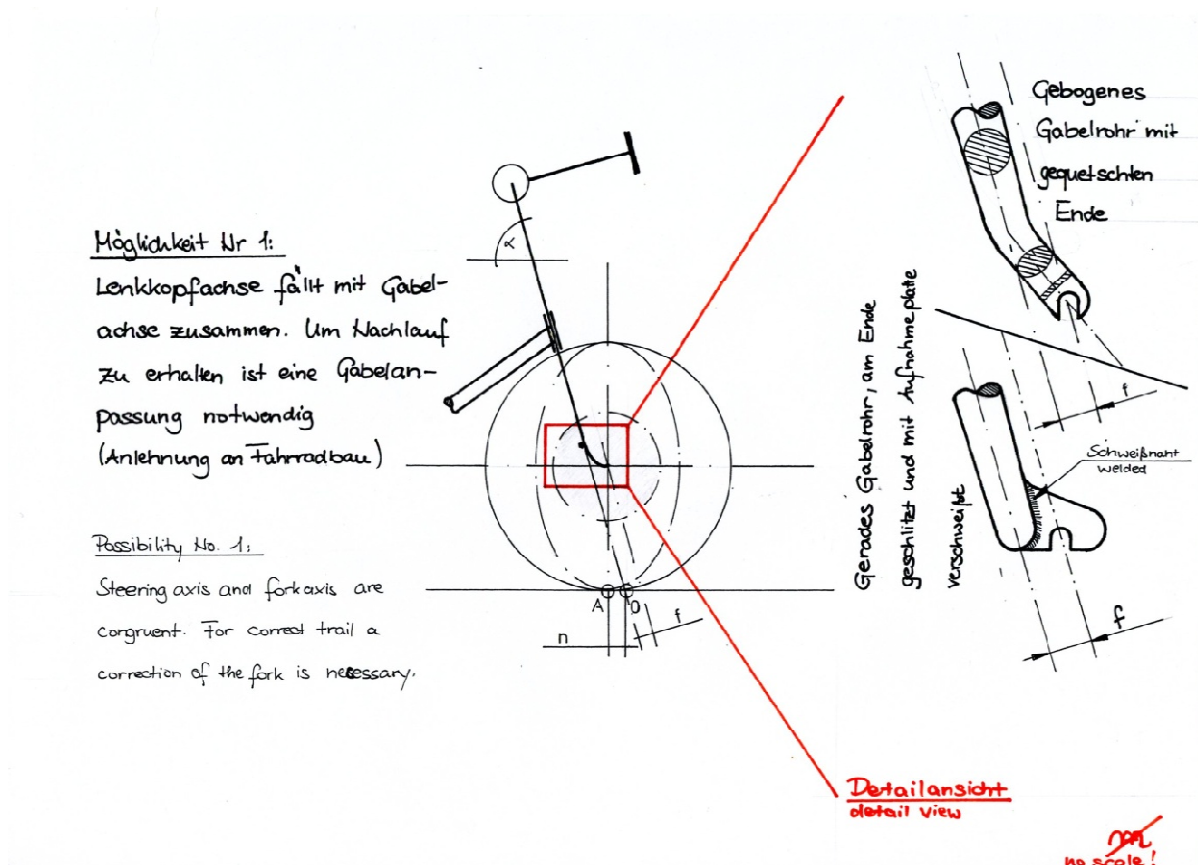 Möglichkeit Nr 1:
Lenkkopfachse fällt mit Gabel-
achse zusammen. Um Nachlauf
zu erhalten ist eine Gabelan-
passung notwendig
(Anlehnung an Fahrradbau)
Possibility No. 1:
Steering axis and fork axis are
congruent. For correct trail a
correction of the fork is necessary.
α
A D
n
f
Gebogenes
Gabelrohr mit
gequetschten
Ende
f
Gerades Gabelrohr, am Ende
geschlitzt und mit Aufnahmeplate
verschweißt
Schweißnaht
welded
f
Detailansicht
detail view
no scale!